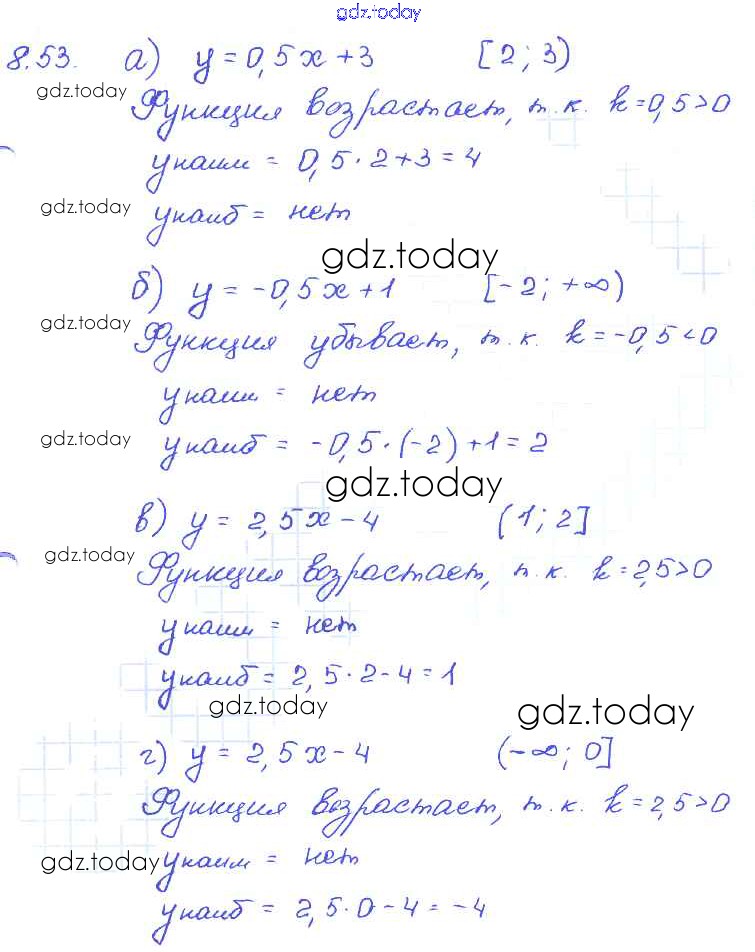 gdz.today
8.53. а) y = 0,5x + 3 [2; 3)
gdz.today
Функция возрастает, т.к. k = 0,5 > 0
yнаим = 0,5 · 2 + 3 = 4
gdz.today
yнаиб = нет
gdz.today
б) y = -0,5x + 1 [-2; +∞)
gdz.today
Функция убывает, т.к. k = -0,5 < 0
yнаим = нет
gdz.today
yнаиб = -0,5 · (-2) + 1 = 2
gdz.today
в) y = 2,5x - 4 (1; 2]
gdz.today
Функция возрастает, т.к. k = 2,5 > 0
yнаим = нет
yнаиб = 2,5 · 2 - 4 = 1
gdz.today
gdz.today
г) y = 2,5x - 4 (-∞; 0]
Функция возрастает, т.к. k = 2,5 > 0
gdz.today yнаим = нет
yнаиб = 2,5 · 0 - 4 = -4